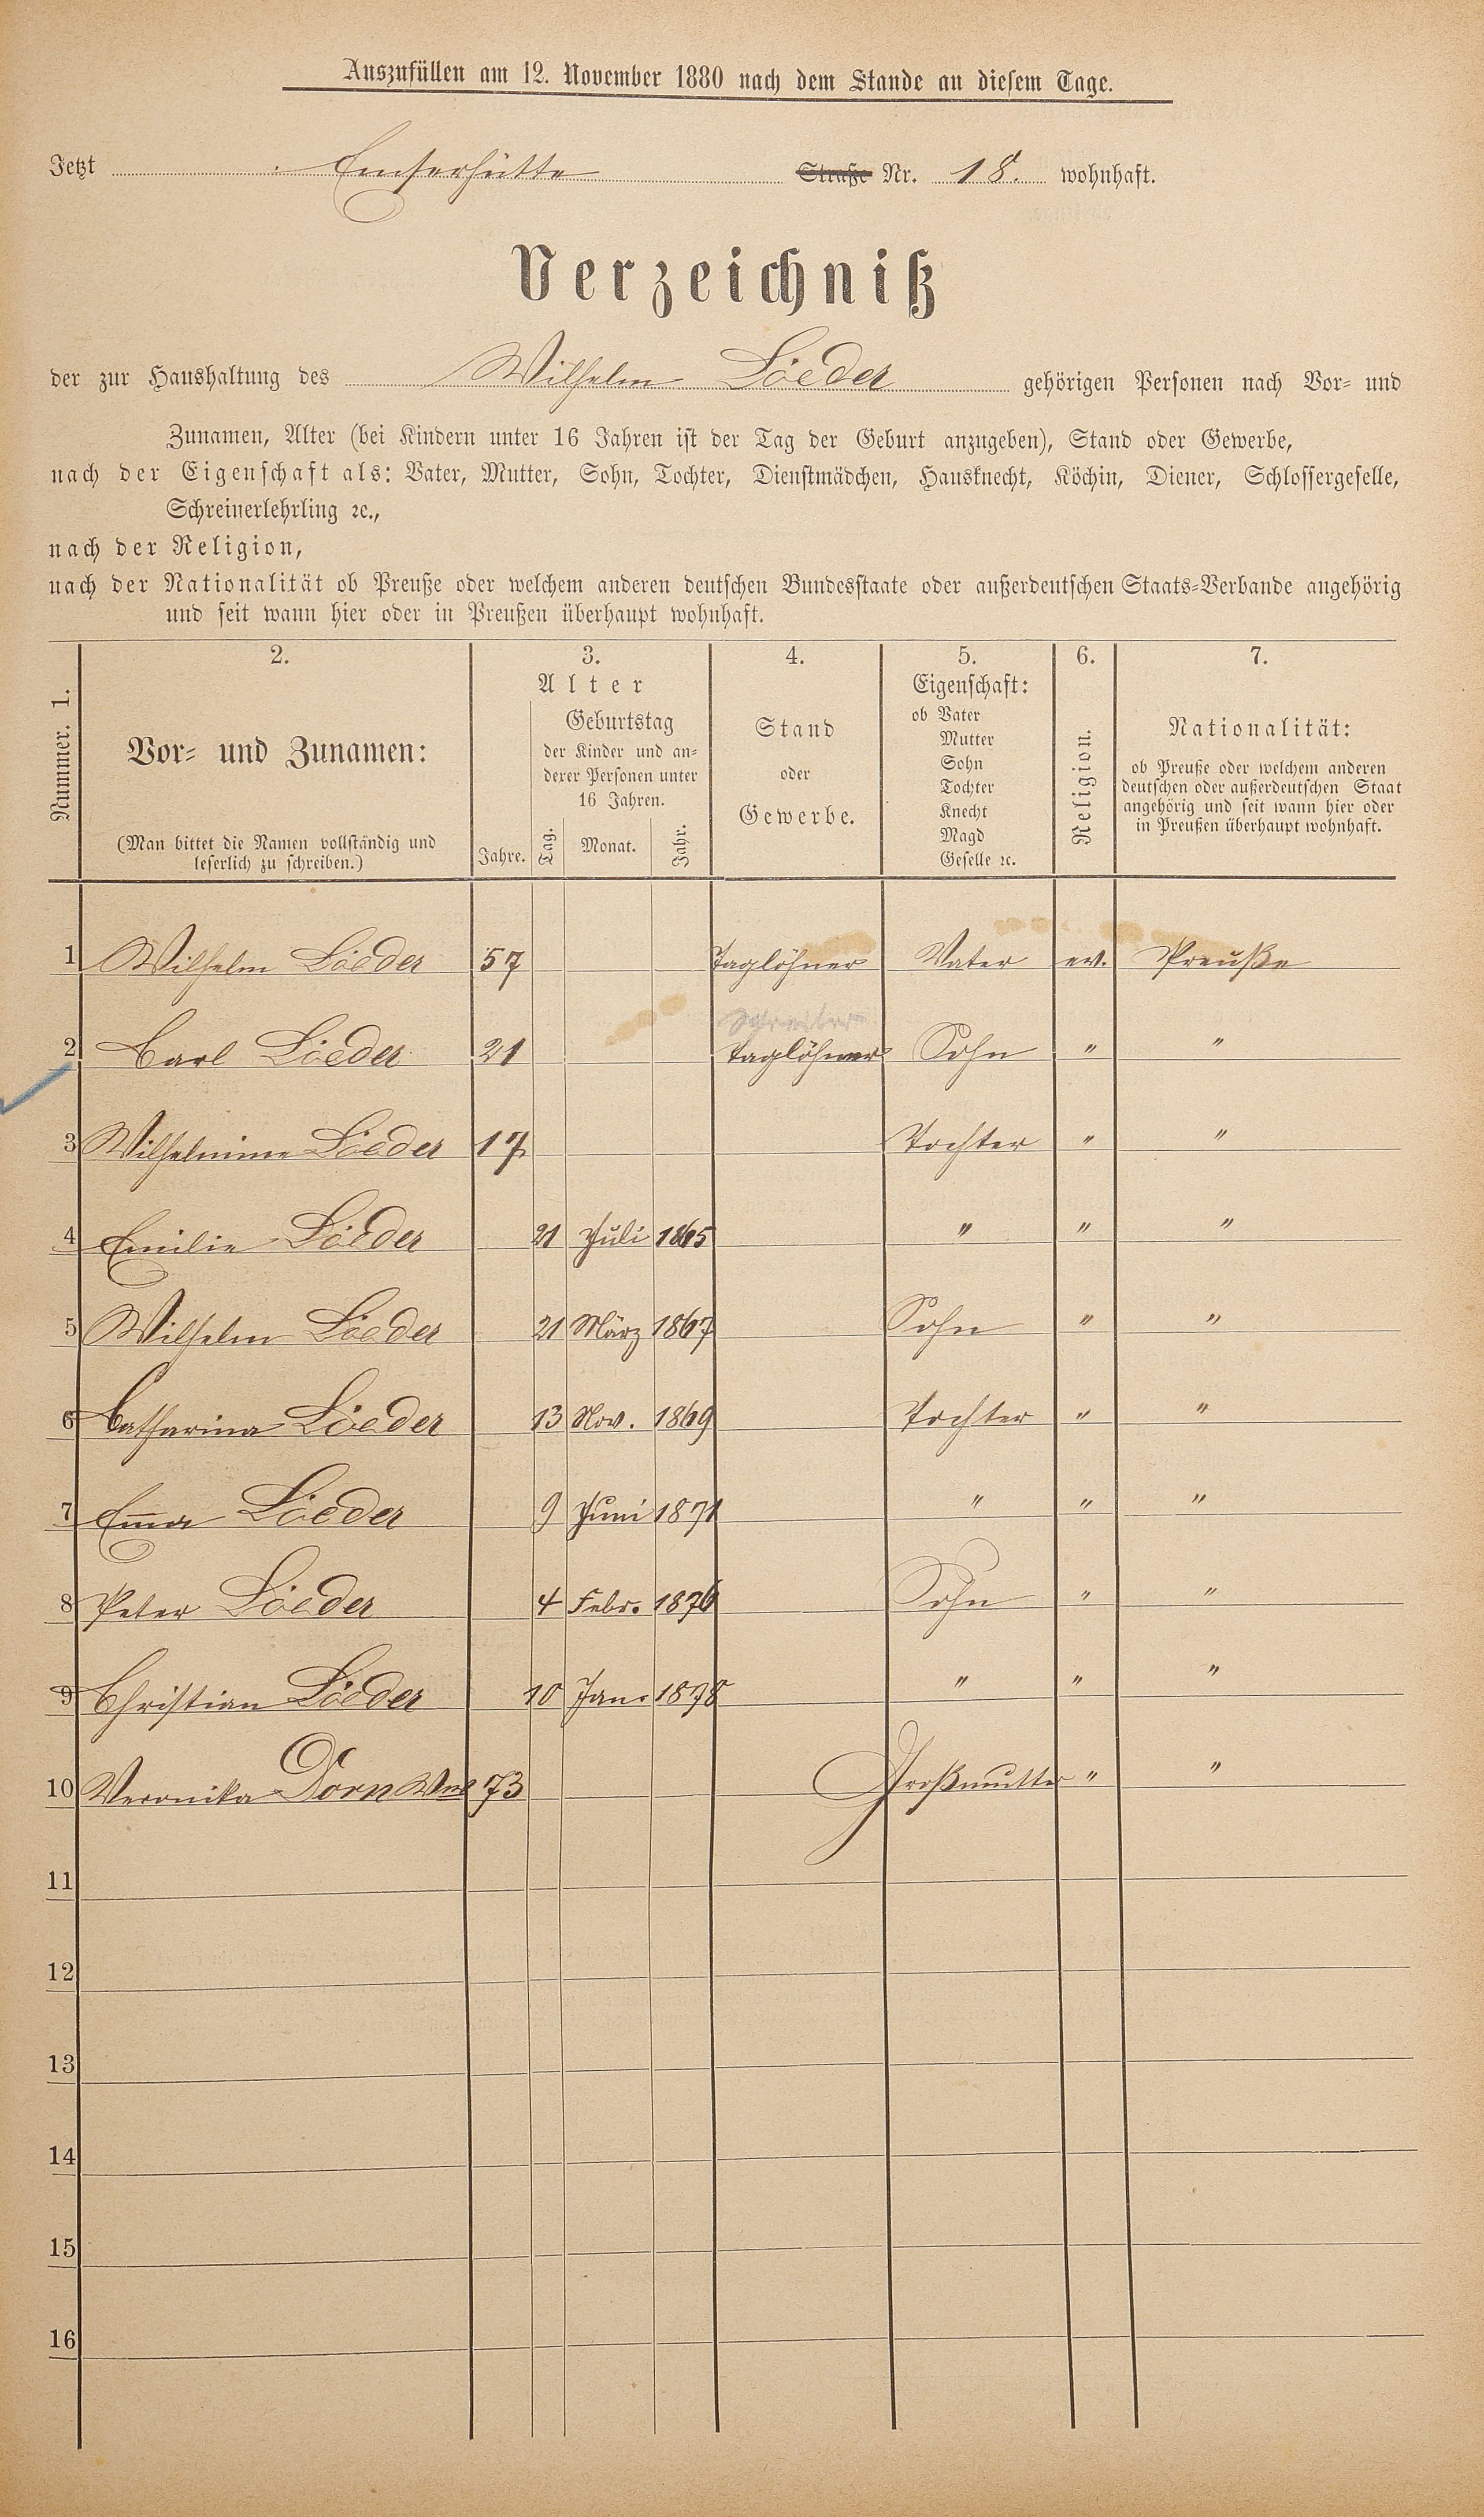 Auszufüllen am 12. November 1880 nach dem Stande an diesem Tage.
Jetzt Emserhütte Straße Nr. 18. wohnhaft.
Verzeichniß
der zur Haushaltung des Wilhelm Löeder gehörigen Personen nach Vor- und
Zunamen, Alter (bei Kindern unter 16 Jahren ist der Tag der Geburt anzugeben), Stand oder Gewerbe,
nach der Eigenschaft als: Vater, Mutter, Sohn, Tochter, Dienstmädchen, Hausknecht, Köchin, Diener, Schlossergeselle,
Schreinerlehrling ꝛc.,
nach der Religion,
nach der Nationalität ob Preuße oder welchem anderen deutschen Bundesstaate oder außerdeutschen Staats-Verbande angehörig
und seit wann hier oder in Preußen überhaupt wohnhaft.
Nummer. 1.
2.
Vor- und Zunamen:
(Man bittet die Namen vollständig und
leserlich zu schreiben.)
3.
Alter
Jahre.
Geburtstag
der Kinder und an-
derer Personen unter
16 Jahren.
Tag. Monat. Jahr.
4.
Stand
oder
Gewerbe.
5.
Eigenschaft:
ob Vater
Mutter
Sohn
Tochter
Knecht
Magd
Geselle ꝛc.
6.
Religion.
7.
Nationalität:
ob Preuße oder welchem anderen
deutschen oder außerdeutschen Staat
angehörig und seit wann hier oder
in Preußen überhaupt wohnhaft.
1 Wilhelm Löeder 57 Taglöhner Vater ev. Preuße
Schreiber
2 Carl Löeder 21 Taglöhner Sohn " "
3 Wilhelmine Löeder 17 Tochter " "
4 Emilie Löeder 21 Juli 1865 " " "
5 Wilhelm Löeder 21 März 1867 Sohn " "
6 Catharina Löeder 13 Nov. 1869 Tochter " "
7 Em̅a Löeder 9 Juni 1871 " " "
8 Peter Löeder 4 Febr. 1876 Sohn " "
9 Christian Löeder 10 Jan. 1878 " " "
10 Veronika Dorn Wwe 73 Großmutter " "
11
12
13
14
15
16